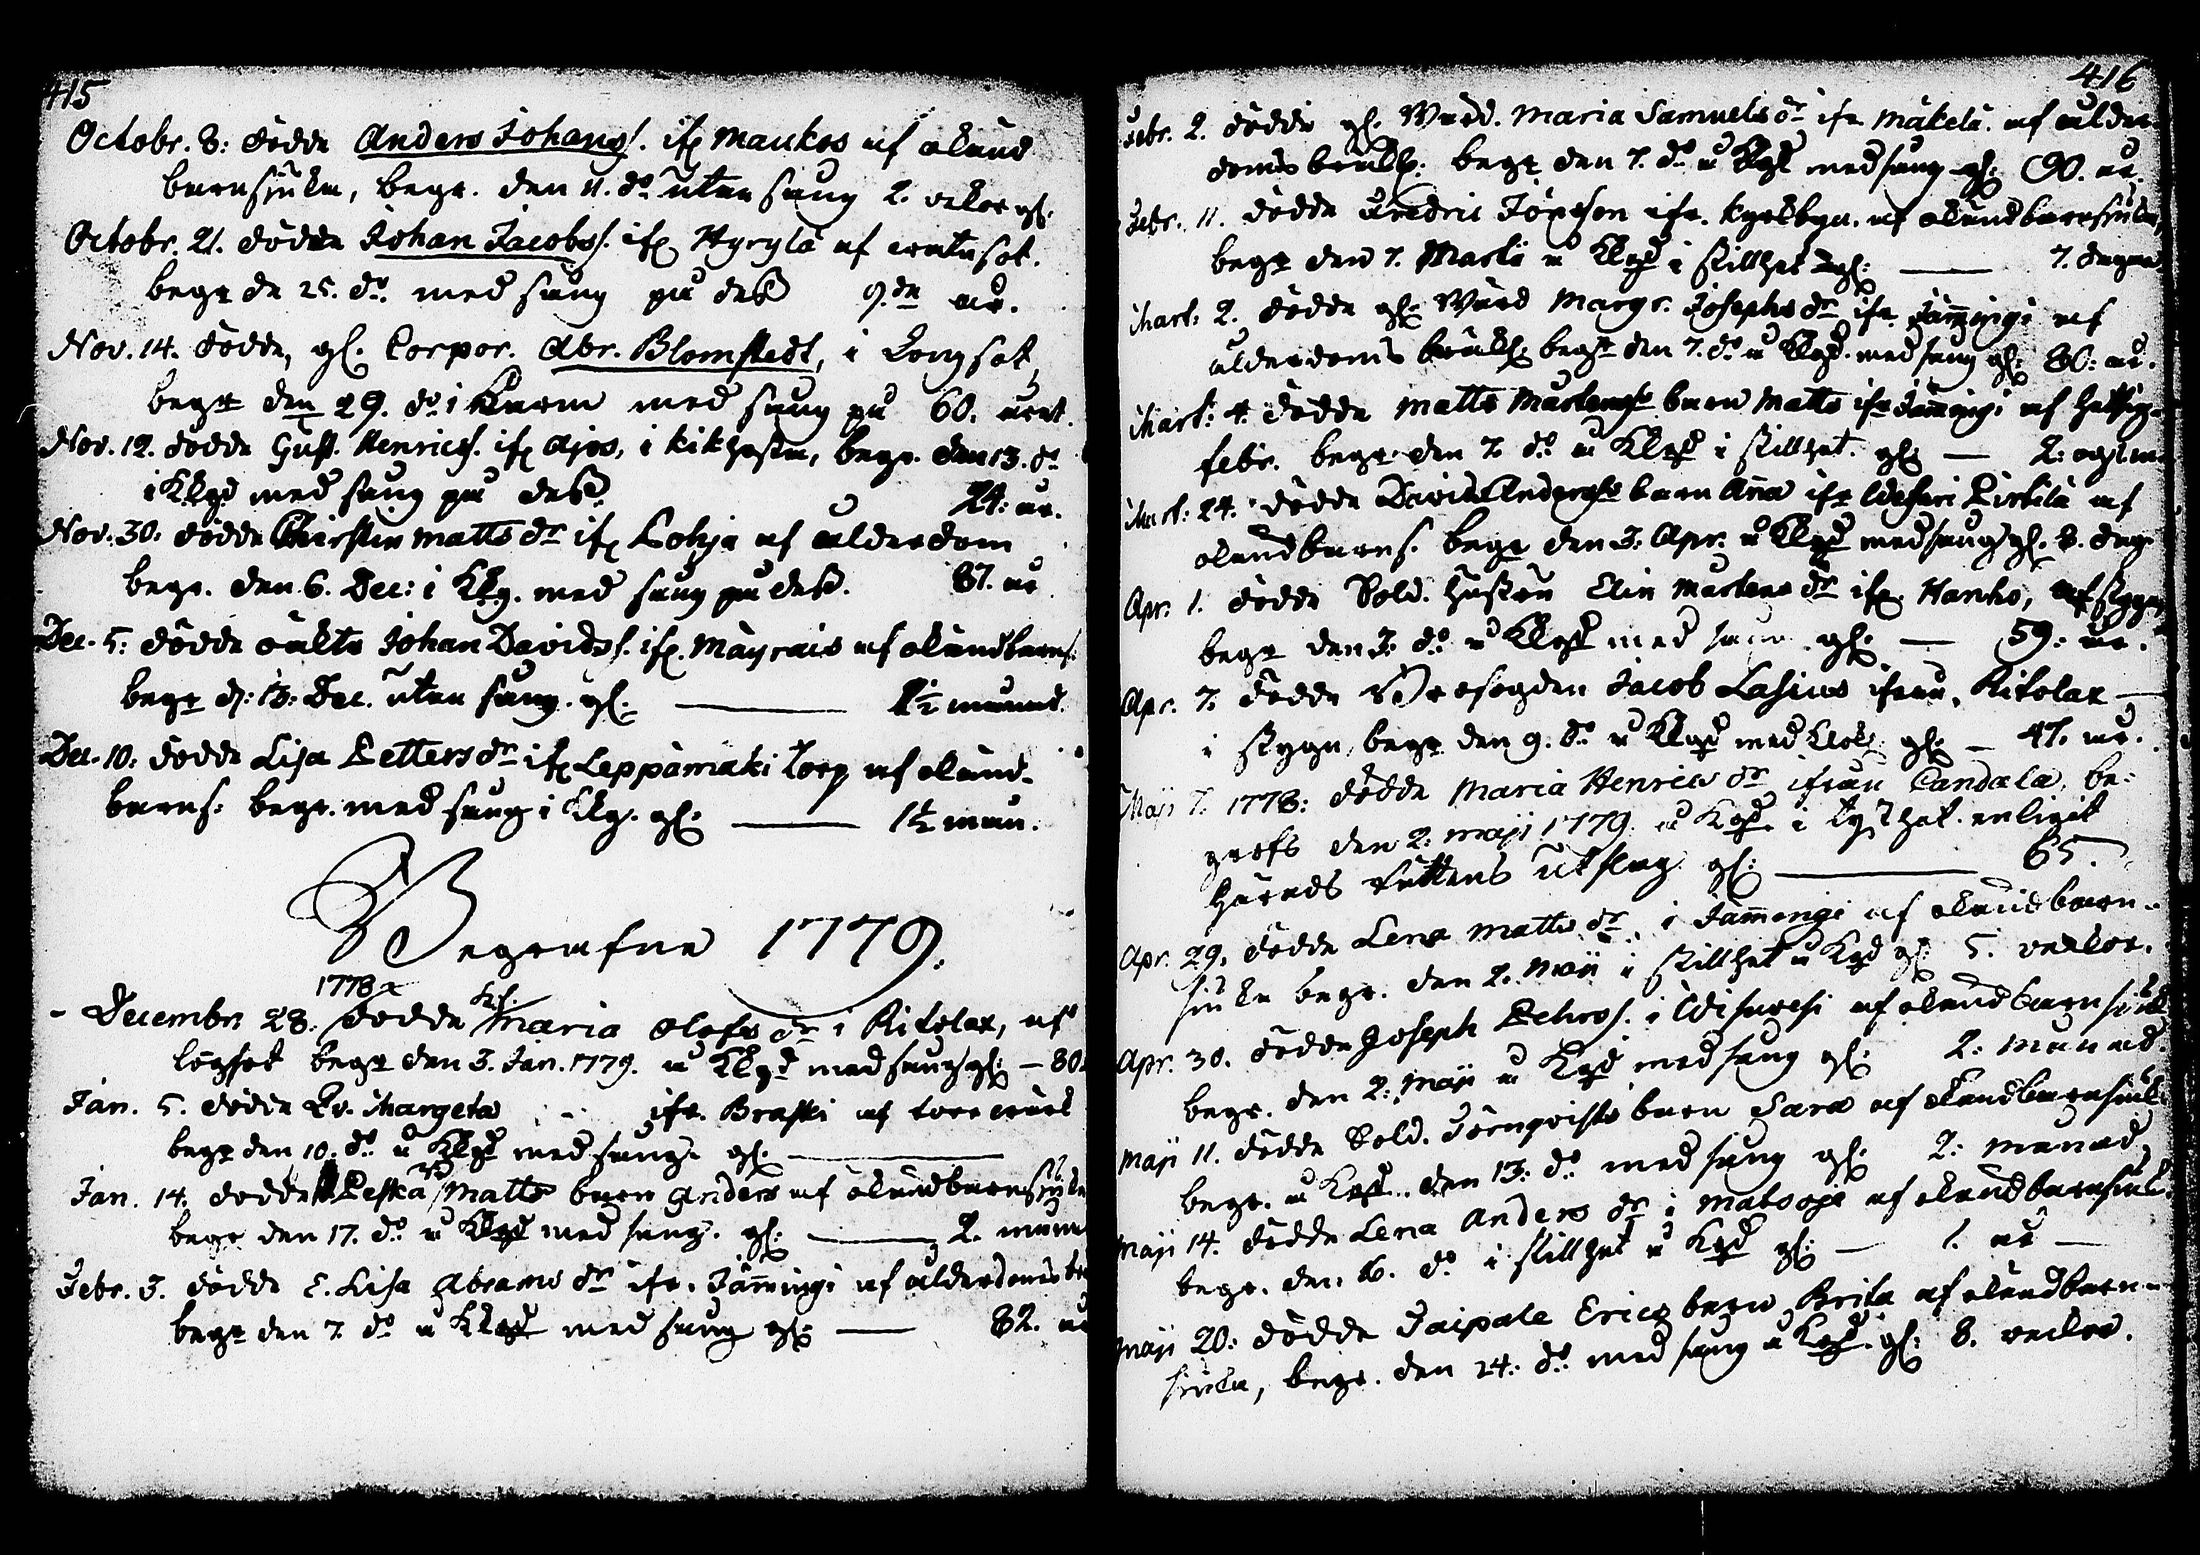 415
Octobr. 8: dödde Anders Johans s. ifr Maukos af okiud
barnsjuka, begr. den 11. do utan sång 2. vekor gl.
Octobr. 21. dödde Johan Jacobs s. ifr Hyrylä af rötusot.
begr de 25. do. med sång på dess 9.de år.
Nov. 14. dödde, gl. Corpor. Abr. Blomstedt, i Lungsot,
begr den 29. do i med sång på 60. året.
Nov. 12. dödde Gust. Henrics s. ifr Ajos, i kikhosta, begr. den 13. do
i Klgd med sång på dess 24: år.
Nov. 30. dödde Kirstin Matts dr ifr Lohja af ålderdom
begr. den 6. Dec: i Klg. med sång på dess. 87. år
Dec. 5: dödde oälta Johan Davids s. ifr. Mäyräis af okändbarns:
begr d: 13: Dec. utan sång. gl. — 1½ månad.
Dec. 10. dödde Lisa Petters dr ifr Leppämäki torp af okänd-
barns: begr. med sång i Klg. gl: — 1½ mån.
Begrafne 1779.
1778
Decembr 28. dödde Maria Olofs dr i Kitolax, af
begr den 3. Jan. 1779. å Klgd med sång gl: — 80
Jan. 5. dödde Margeta ifr. Braski af torrvärk
begr den 10. do å Klgd med sång gl: —
Jan. 14. dödde Peska Matts barn Anders af okändbarnsjuka
begr den 17. do å Klgd med sång. gl: — 2. måna
Febr. 3. dödde E. Lisa Abrams dr ifr. Jämmingi af ålderdoms
begr den 7. do å Klgd med sång gl: — 82. år
416
Febr. 2. dödde gl. Wärd. Maria Samuels dr ifr Mäkelä. af ålder
doms bräckl: begr den 7. do å Klgd med sång gl: 90. år.
Febr. 11. dödde Fredric Jöransson ifr. Kyrkbyn. af okändbarnsjuka,
begr den 7. Martii å Klgd i stillhet gl: — 7. dagar
Mart: 2. dödde gl: Wärd Margr. Josephs dr ifr. Jämmingi af
ålderdoms bräckl: begr den 7. do å Klgd. med sång gl: 80: år.
Mart: 4. dödde Matts Mårtenss barn Matts ifr Jämmingi af hetsig
febr. begr den 7. do å Klgd i stillhet. gl: — 2:
Mart: 24. dödde David Anderss barn Anna ifr Wesari Pirkilä af
okändbarns. begr den 3: Apr. å Klgd med sång gl. 8. dag
Apr: 1. dödde Sold. hustru Elin Mårtens dr ifr. Hanho, af styng
begr den 3: do å Klgd med sång. gl: — 59: år.
Apr. 7. dödde Jacob Lasius ifrån Kitolax —
i styng, begr den 9. do å Klgd med klock gl: — 47. år.
Maji 7. 1778: dödde Maria Henrics dr ifrån Candala, be-
grofs den 2: Maji 1779. å Kgd. i tysthet enligit
Härads Rättens utslag gl: — 65.
Apr. 29. dödde Lena Matts dr. i Jammengi af okändbarn-
sjuka begr. den 2. Maji i stillhet å Kgd gl: 5. veckor.
Apr. 30. dödde Joseph Petters s. i Widsuvesi af okändbarnsjuk
begr. den 2: Maji å Kgd med sång gl: 2: månad.
Maji 11. dödde Sold. Törnqvists barn Sara af okändbarnsjuk
begr. å Kgd den 13: do med sång gl: 2: månad,
Maji 14. dödde Lena Anders dr i Matsoga af okändbarnsjuk.
begr. den. 16. do i stillhet å Kgd gl: — 1. år —
Maji 20: dödde Jaipale Erics barn Brita af okändbarn-
sjuka, begr. den 24: do med sång å Kgd. gl: 8. veckor.